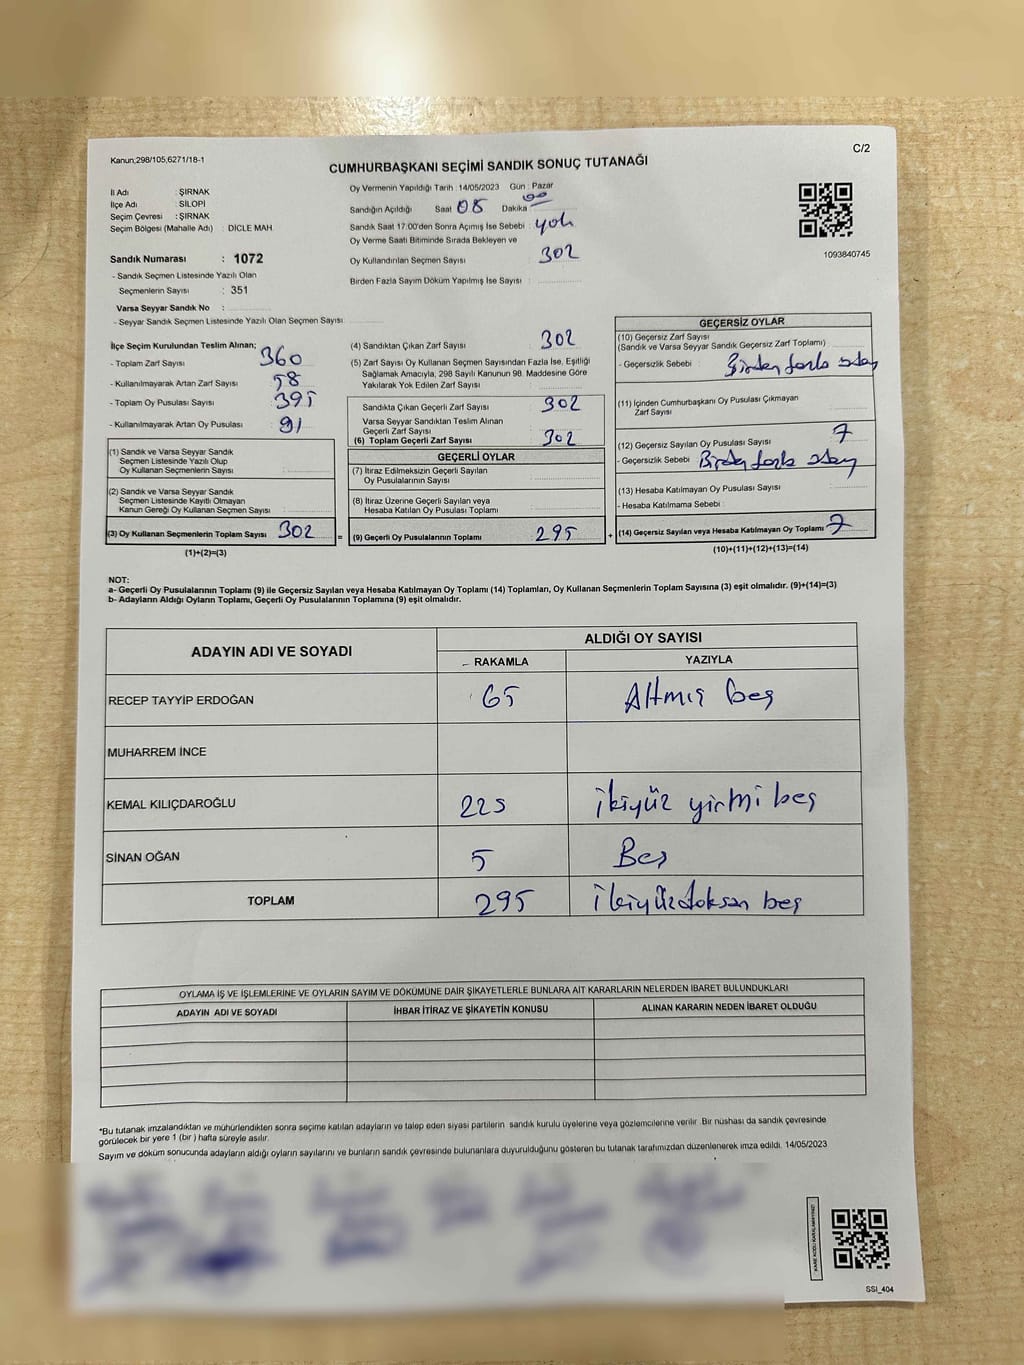 Kanun;298/105,6271/18-1
C/2
CUMHURBAŞKANI SEÇİMİ SANDIK SONUÇ TUTANAĞI
İl Adı : ŞIRNAK
İlçe Adı : SİLOPİ
Seçim Çevresi : ŞIRNAK
Seçim Bölgesi (Mahalle Adı) : DİCLE MAH
Oy Vermenin Yapıldığı Tarih : 14/05/2023 Gün : Pazar
Sandığın Açıldığı Saat 08 Dakika 00
Sandık Saat 17:00'den Sonra Açımış İse Sebebi : yok
Oy Verme Saati Bitiminde Sırada Bekleyen ve
Oy Kullandırılan Seçmen Sayısı : 302
Birden Fazla Sayım Döküm Yapılmış İse Sayısı :
1093840745
Sandık Numarası : 1072
- Sandık Seçmen Listesinde Yazılı Olan
Seçmenlerin Sayısı : 351
Varsa Seyyar Sandık No :
- Seyyar Sandık Seçmen Listesinde Yazılı Olan Seçmen Sayısı
İlçe Seçim Kurulundan Teslim Alınan;
- Toplam Zarf Sayısı 360
- Kullanılmayarak Artan Zarf Sayısı 58
- Toplam Oy Pusulası Sayısı 395
- Kullanılmayarak Artan Oy Pusulası 91
(1) Sandık ve Varsa Seyyar Sandık
Seçmen Listesinde Yazılı Olup
Oy Kullanan Seçmenlerin Sayısı :
(2) Sandık ve Varsa Seyyar Sandık
Seçmen Listesinde Kayıtlı Olmayan
Kanun Gereği Oy Kullanan Seçmen Sayısı :
(3) Oy Kullanan Seçmenlerin Toplam Sayısı 302 =
(1)+(2)=(3)
(4) Sandıktan Çıkan Zarf Sayısı 302
(5) Zarf Sayısı Oy Kullanan Seçmen Sayısından Fazla İse, Eşitliği
Sağlamak Amacıyla, 298 Sayılı Kanunun 98. Maddesine Göre
Yakılarak Yok Edilen Zarf Sayısı :
Sandıkta Çıkan Geçerli Zarf Sayısı 302
Varsa Seyyar Sandıktan Teslim Alınan
Geçerli Zarf Sayısı :
(6) Toplam Geçerli Zarf Sayısı 302
GEÇERLİ OYLAR
(7) İtiraz Edilmeksizin Geçerli Sayılan
Oy Pusulalarının Sayısı :
(8) İtiraz Üzerine Geçerli Sayılan veya
Hesaba Katılan Oy Pusulası Toplamı
(9) Geçerli Oy Pusulalarının Toplamı 295 +
GEÇERSİZ OYLAR
(10) Geçersiz Zarf Sayısı
(Sandık ve Varsa Seyyar Sandık Geçersiz Zarf Toplamı)
- Geçersizlik Sebebi : Birden fazla aday
(11) İçinden Cumhurbaşkanı Oy Pusulası Çıkmayan
Zarf Sayısı
(12) Geçersiz Sayılan Oy Pusulası Sayısı 7
- Geçersizlik Sebebi : Birden fazla aday
(13) Hesaba Katılmayan Oy Pusulası Sayısı
- Hesaba Katılmama Sebebi :
(14) Geçersiz Sayılan veya Hesaba Katılmayan Oy Toplamı 7
(10)+(11)+(12)+(13)=(14)
NOT:
a- Geçerli Oy Pusulalarının Toplamı (9) ile Geçersiz Sayılan veya Hesaba Katılmayan Oy Toplamı (14) Toplamları, Oy Kullanan Seçmenlerin Toplam Sayısına (3) eşit olmalıdır. (9)+(14)=(3)
b- Adayların Aldığı Oyların Toplamı, Geçerli Oy Pusulalarının Toplamına (9) eşit olmalıdır.
ADAYIN ADI VE SOYADI ALDIĞI OY SAYISI
RAKAMLA YAZIYLA
RECEP TAYYİP ERDOĞAN 65 Altmış beş
MUHARREM İNCE
KEMAL KILIÇDAROĞLU 225 ikiyüz yirmi beş
SİNAN OĞAN 5 Beş
TOPLAM 295 ikiyüzdoksan beş
OYLAMA İŞ VE İŞLEMLERİNE VE OYLARIN SAYIM VE DÖKÜMÜNE DAİR ŞİKAYETLERLE BUNLARA AİT KARARLARIN NELERDEN İBARET BULUNDUKLARI
ADAYIN ADI VE SOYADI İHBAR İTİRAZ VE ŞİKAYETİN KONUSU ALINAN KARARIN NEDEN İBARET OLDUĞU
*Bu tutanak imzalandıktan ve mühürlendikten sonra seçime katılan adayların ve talep eden siyasi partilerin sandık kurulu üyelerine veya gözlemcilerine verilir. Bir nüshası da sandık çevresinde
görülecek bir yere 1 (bir ) hafta süreyle asılır.
Sayım ve döküm sonucunda adayların aldığı oyların sayılarını ve bunların sandık çevresinde bulunanlara duyurulduğunu gösteren bu tutanak tarafımızdan düzenlenerek imza edildi. 14/05/2023
SSI_404